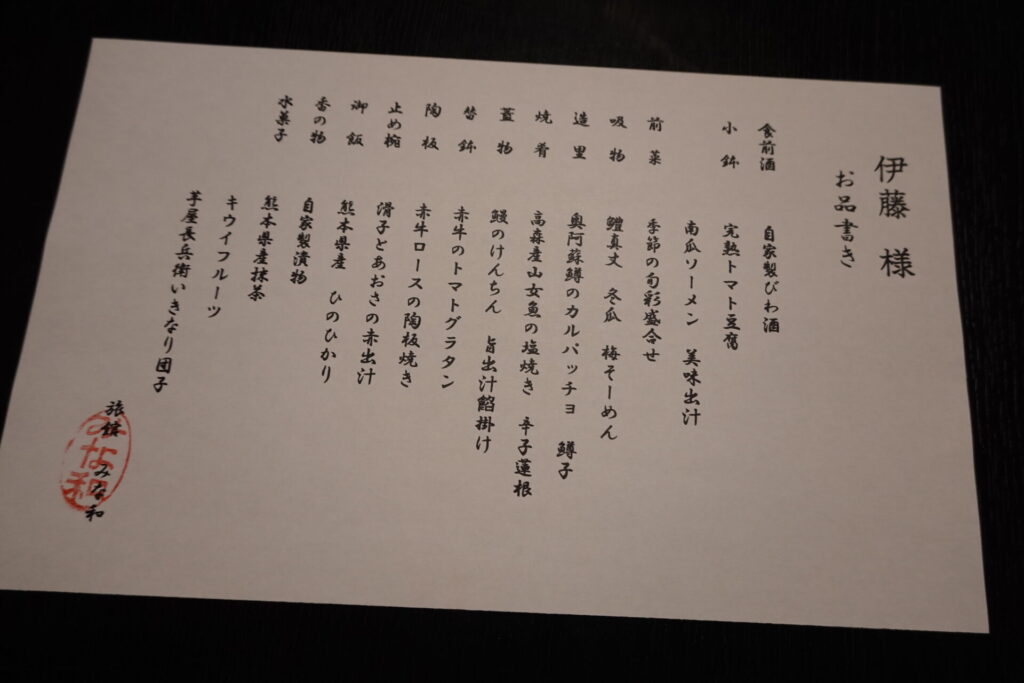 伊藤 様
お品書き
食前酒 自家製びわ酒
小鉢 完熟トマト豆腐
南瓜ソーメン 美味出汁
前菜 季節の旬彩盛合せ
吸物 鱧真丈 冬瓜 梅そーめん
造里 奥阿蘇鱒のカルパッチョ 鱒子
焼肴 高森産山女魚の塩焼き 辛子蓮根
蓋物 鰻のけんちん 旨出汁餡掛け
替鉢 赤牛のトマトグラタン
陶板 赤牛ロースの陶板焼き
止め椀 滑子とあおさの赤出汁
御飯 熊本県産 ひのひかり
香の物 自家製漬物
水菓子 熊本県産抹茶
キウイフルーツ
芋屋長兵衛いきなり団子
旅館 みな和
みな和